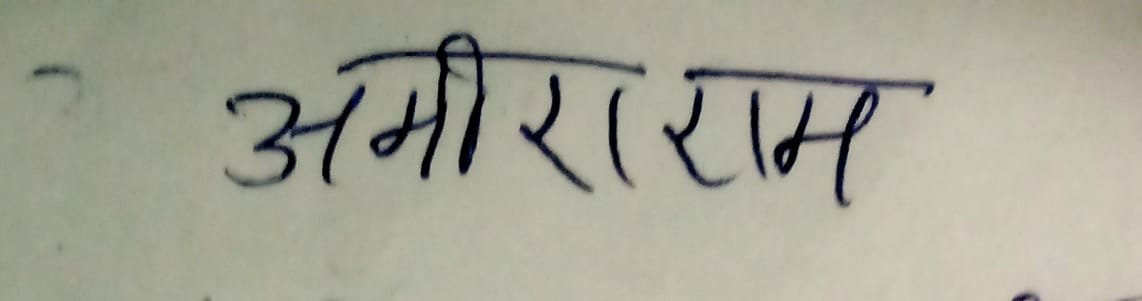 अमीरा राम